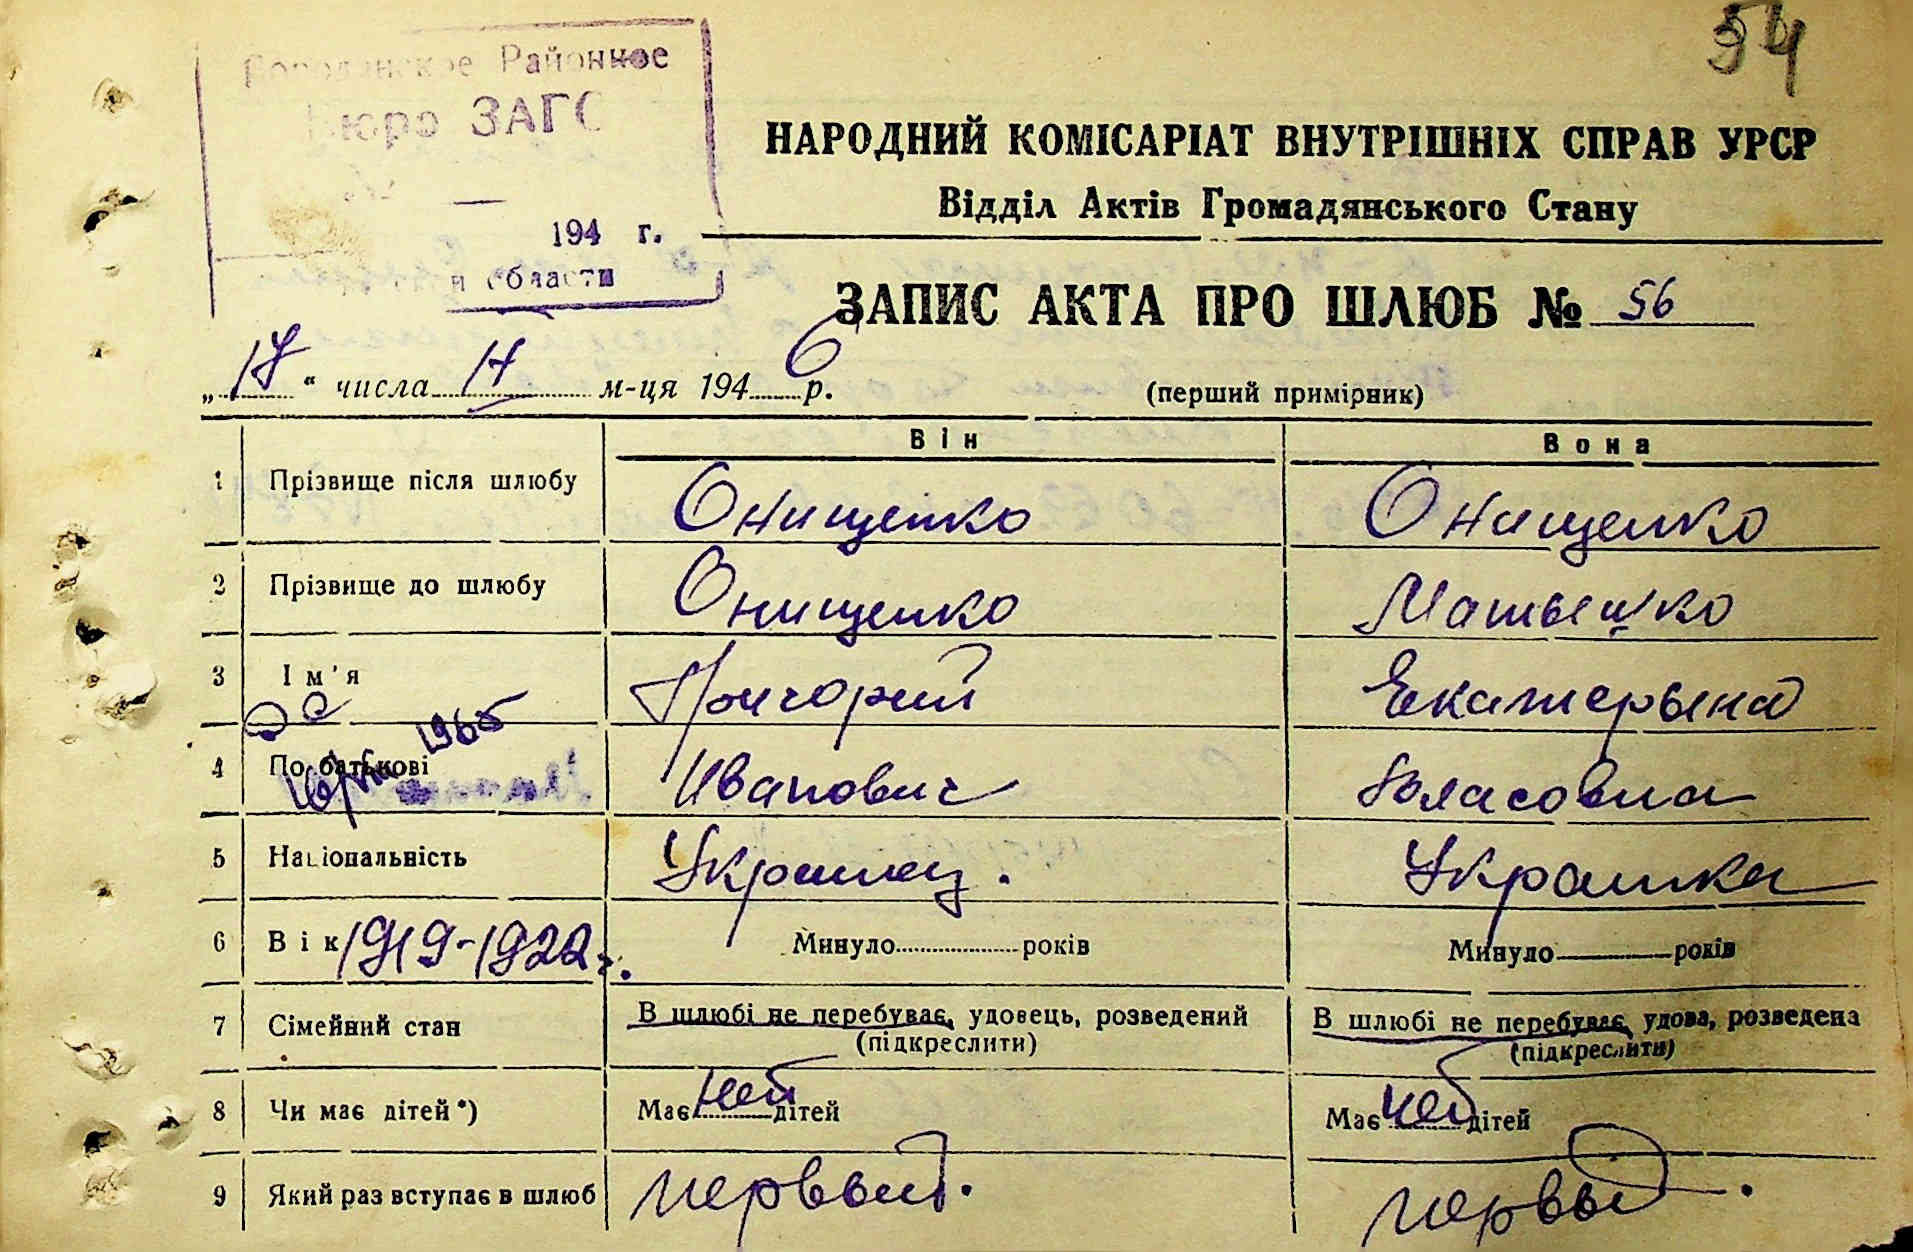 54
Бородянское Районное
Бюро ЗАГС
194 г.
области
НАРОДНИЙ КОМІСАРІАТ ВНУТРІШНІХ СПРАВ УРСР
Відділ Актів Громадянського Стану
ЗАПИС АКТА ПРО ШЛЮБ № 56
„ 17 “ числа м-ця 194 6 р.
(перший примірник)
Він Вона
1 Прізвище після шлюбу Онищенко Онищенко
2 Прізвище до шлюбу Онищенко Матышко
3 Ім'я Григорий Екатерына
4 По батькові 1965 Иванович Власовна
5 Національність Украинец. Украинка
6 Вік 1919-1922 г. Минуло років Минуло років
7 Сімейний стан В шлюбі не перебуває, удовець, розведений В шлюбі не перебуває, удова, розведена
(підкреслити) (підкреслити)
8 Чи має дітей*) Має нет дітей Має нет дітей
9 Який раз вступає в шлюб первый. первый.